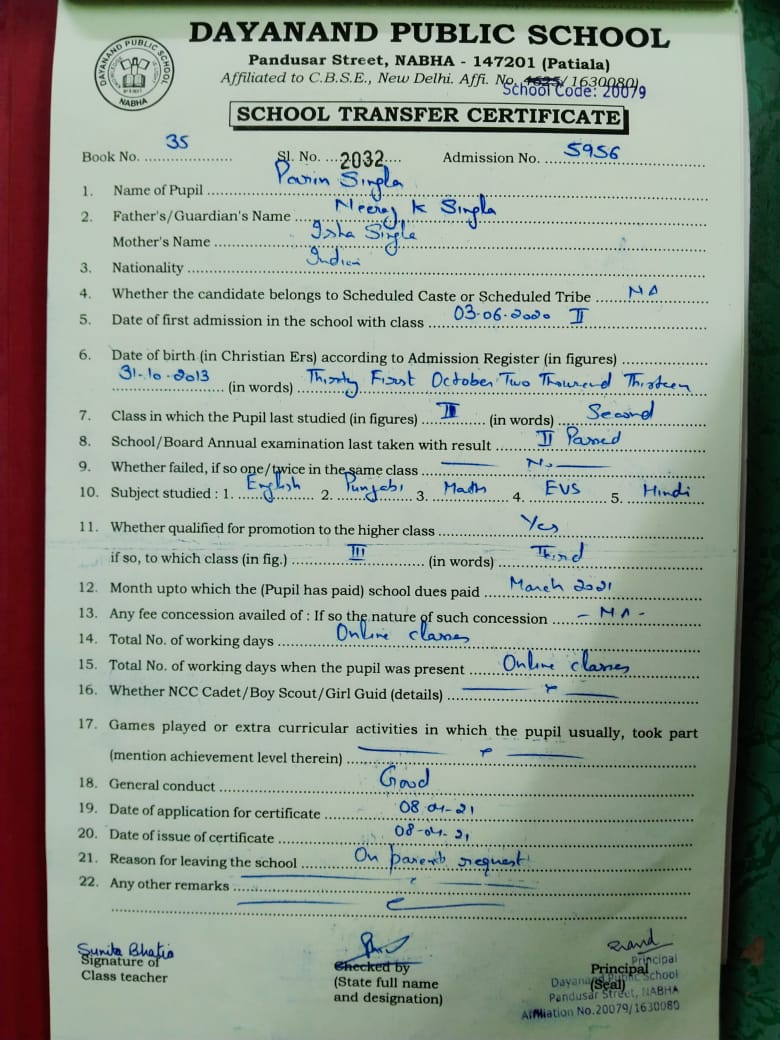 DAYANAND PUBLIC SCHOOL
DAYANAND PUBLIC SCHOOL
NABHA
Pandusar Street, NABHA - 147201 (Patiala)
Affiliated to C.B.S.E., New Delhi. Affi. No. 4625/1630080)
School Code: 20079
SCHOOL TRANSFER CERTIFICATE
Book No. 35 Sl. No. 2032 Admission No. 5956
1. Name of Pupil Parin Singla
2. Father's/Guardian's Name Neeraj K Singla
Mother's Name Isha Singla
3. Nationality Indian
4. Whether the candidate belongs to Scheduled Caste or Scheduled Tribe NA
5. Date of first admission in the school with class 03-06-2020 II
6. Date of birth (in Christian Ers) according to Admission Register (in figures)
31-10-2013 (in words) Thirty First October Two Thousand Thirteen
7. Class in which the Pupil last studied (in figures) II (in words) Second
8. School/Board Annual examination last taken with result II Passed
9. Whether failed, if so one/twice in the same class No
10. Subject studied : 1. English 2. Punjabi 3. Math 4. EVS 5. Hindi
11. Whether qualified for promotion to the higher class Yes
if so, to which class (in fig.) III (in words) Third
12. Month upto which the (Pupil has paid) school dues paid March 2021
13. Any fee concession availed of : If so the nature of such concession - NA -
14. Total No. of working days Online classes
15. Total No. of working days when the pupil was present Online classes
16. Whether NCC Cadet/Boy Scout/Girl Guid (details)
17. Games played or extra curricular activities in which the pupil usually, took part
(mention achievement level therein)
18. General conduct Good
19. Date of application for certificate 08-04-21
20. Date of issue of certificate 08-04-21
21. Reason for leaving the school On parents request
22. Any other remarks
Sunita Bhatia
Signature of
Class teacher
Checked by
(State full name
and designation)
Principal
(Seal)
Principal
Dayanand Public School
Pandusar Street, NABHA
Affiliation No.20079/1630080